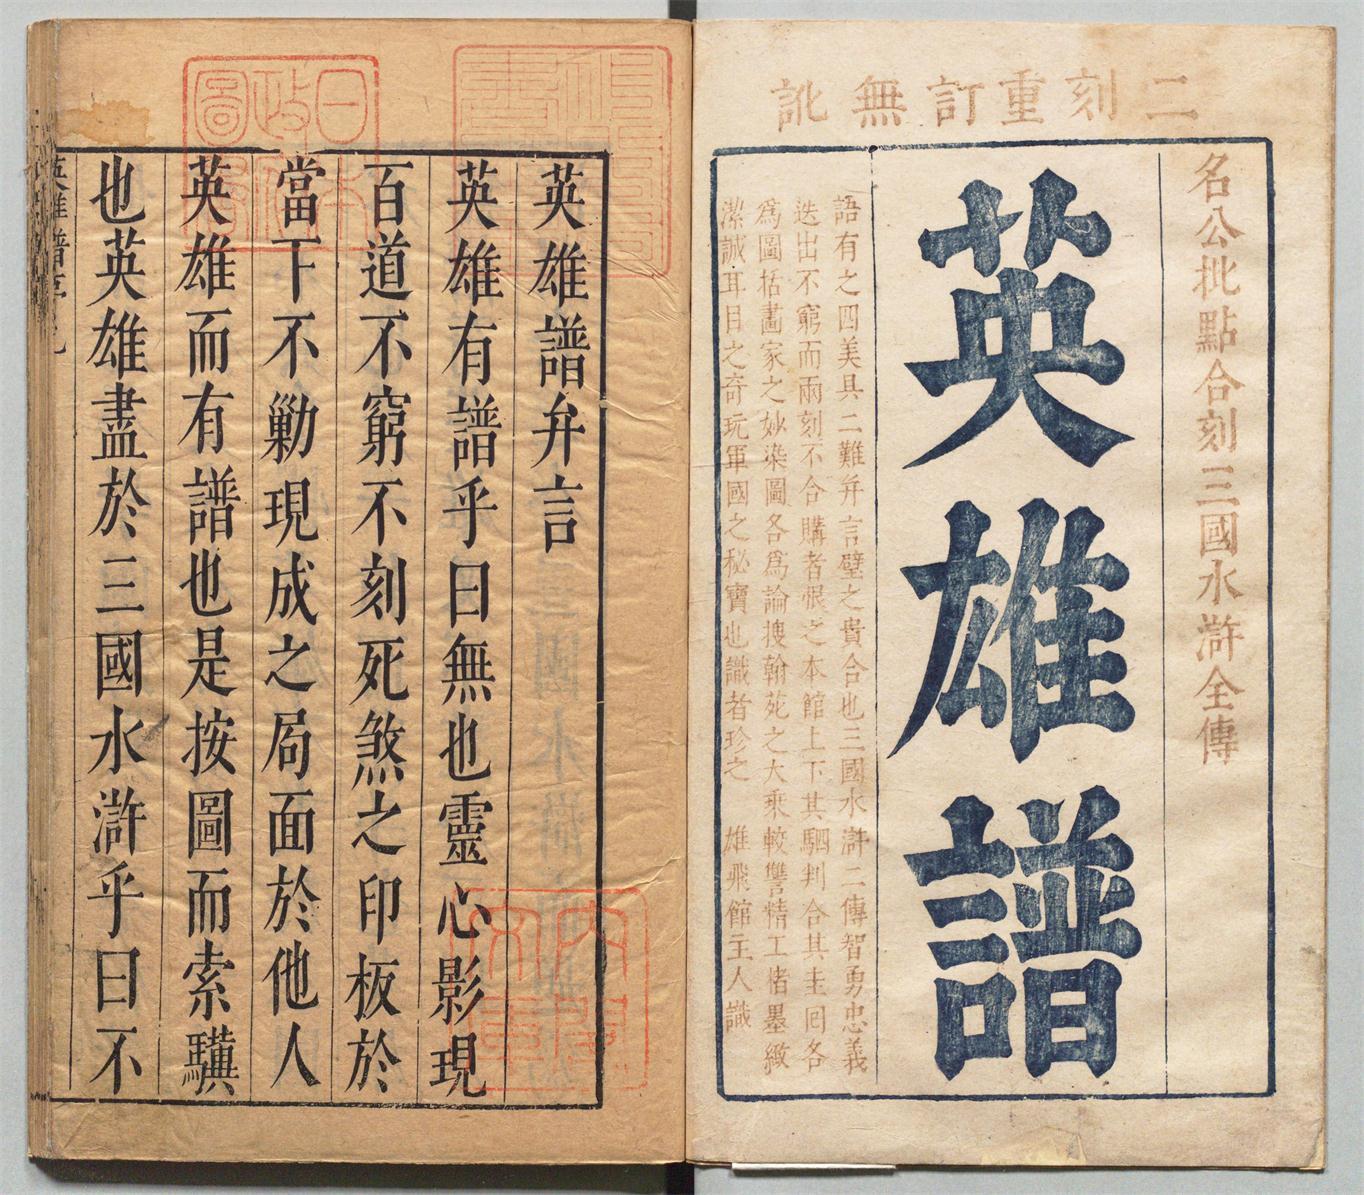 二刻重訂無訛
名公批點合刻三國水滸全傳
英雄譜
語有之四美具二難幷言璧之貴合也三國水滸二傳智勇忠義
迭出不窮而兩刻不合購者恨之本館上下其駟判合其圭回各
爲圖括畫家之妙染圖各爲論搜翰苑之大乘較讐精工楮墨緻
潔誠耳目之奇玩軍國之秘寶也識者珍之 雄飛館主人識
英雄譜弁言
英雄有譜乎曰無也靈心影現
百道不窮不刻死煞之印板於
當下不勦現成之局面於他人
英雄而有譜也是按圖而索驥
也英雄盡於三國水滸乎曰不
英雄譜
日本
政府
圖書
內閣
文庫